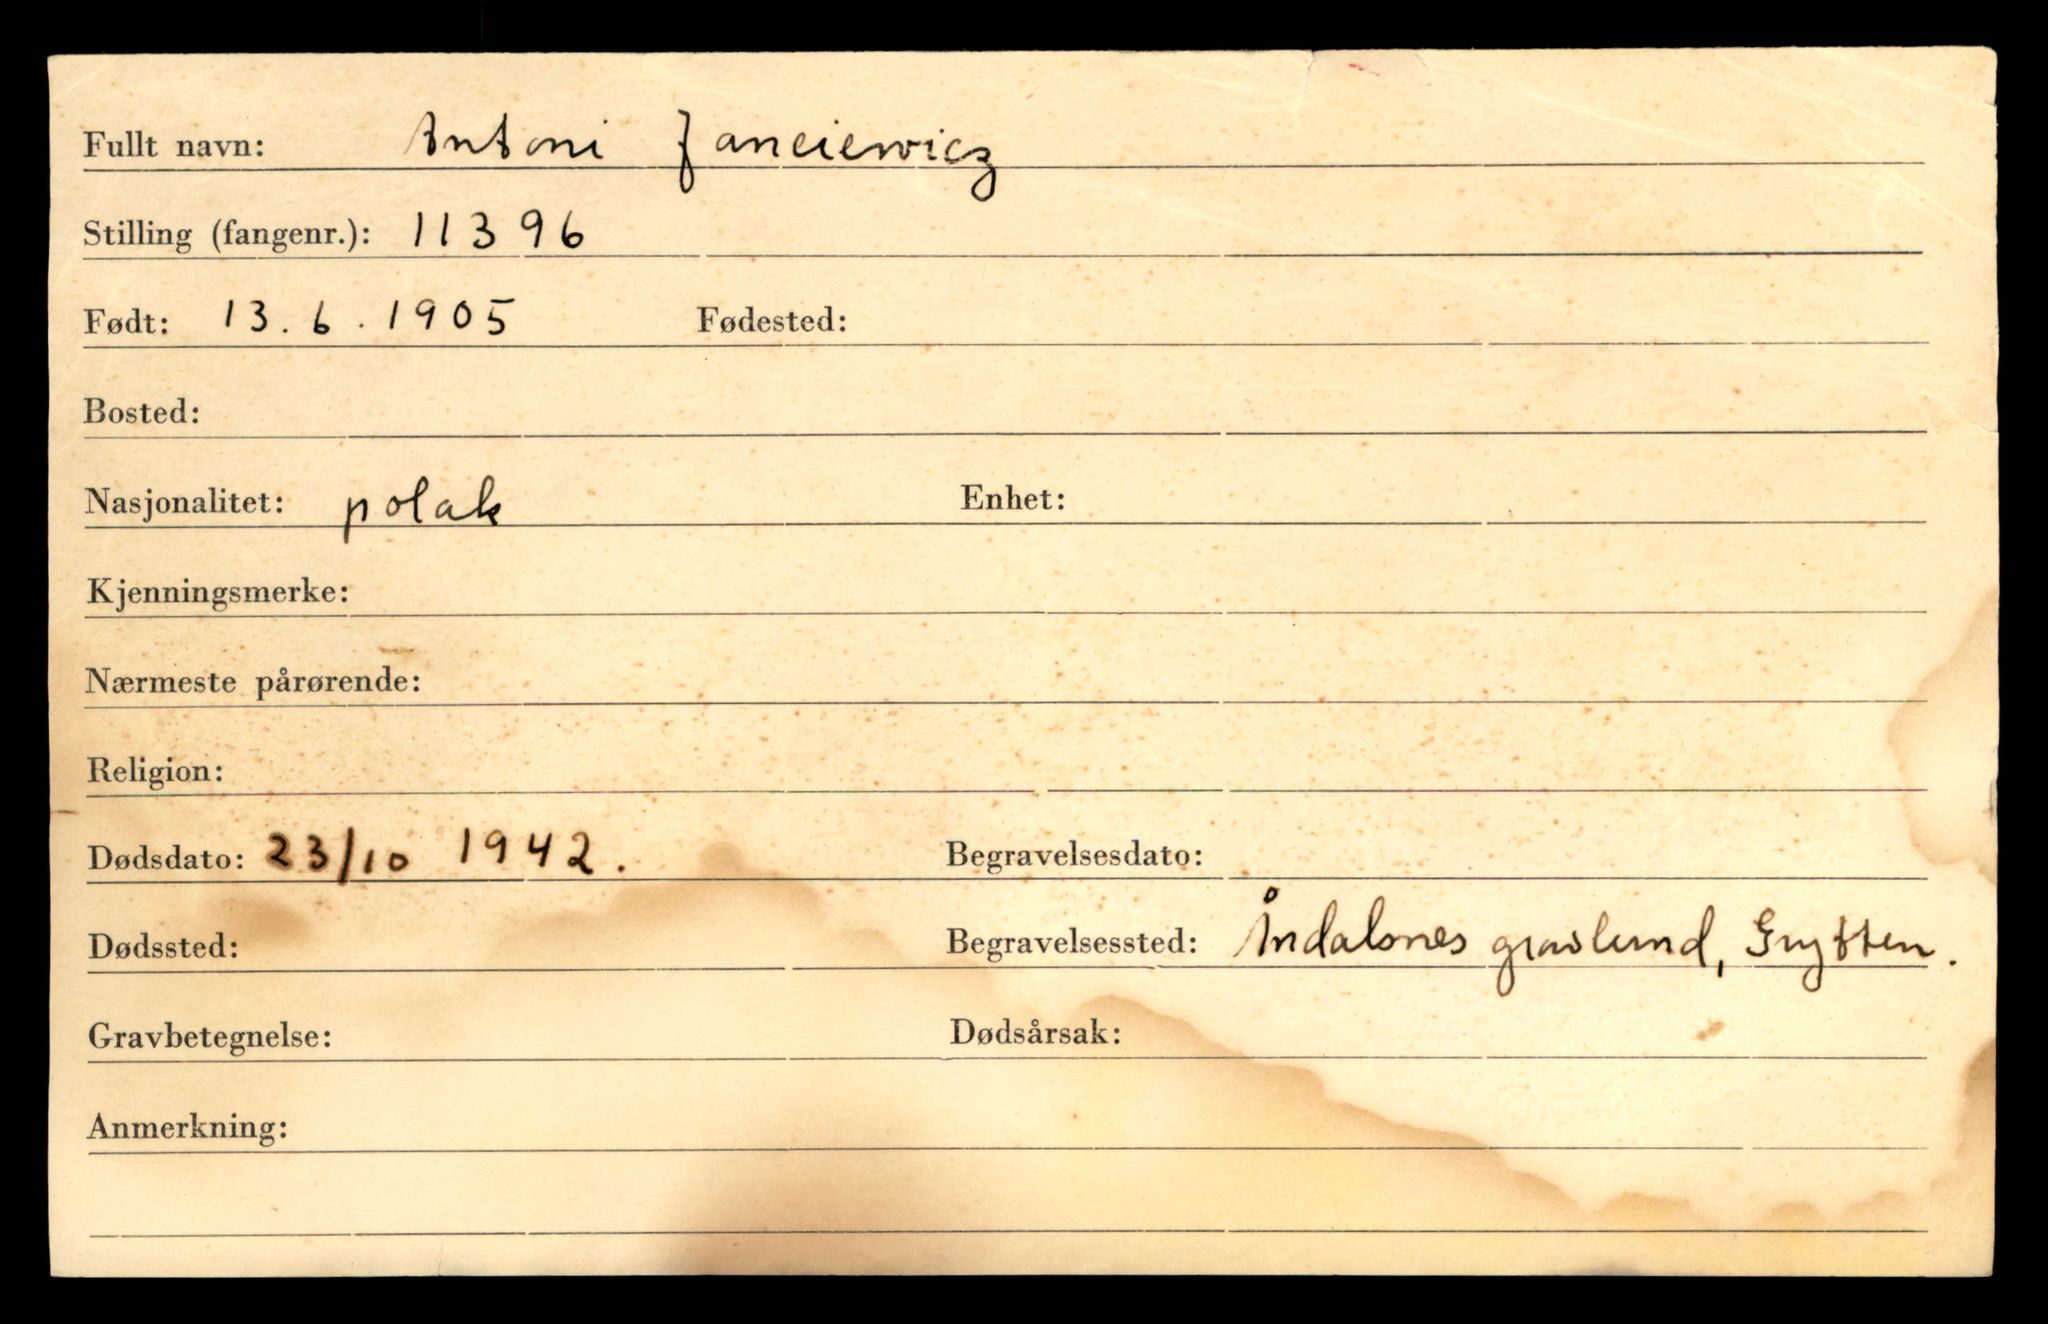 Fullt navn: Antoni Janciewicz
Stilling (fangenr.): 11396
Født: 13.6.1905 Fødested:
Bosted:
Nasjonalitet: polak Enhet:
Kjenningsmerke:
Nærmeste pårørende:
Religion:
Dødsdato: 23/10 1942. Begravelsesdato:
Dødssted: Begravelsessted: Åndalsnes gravlund, Grytten.
Gravbetegnelse: Dødsårsak:
Anmerkning: